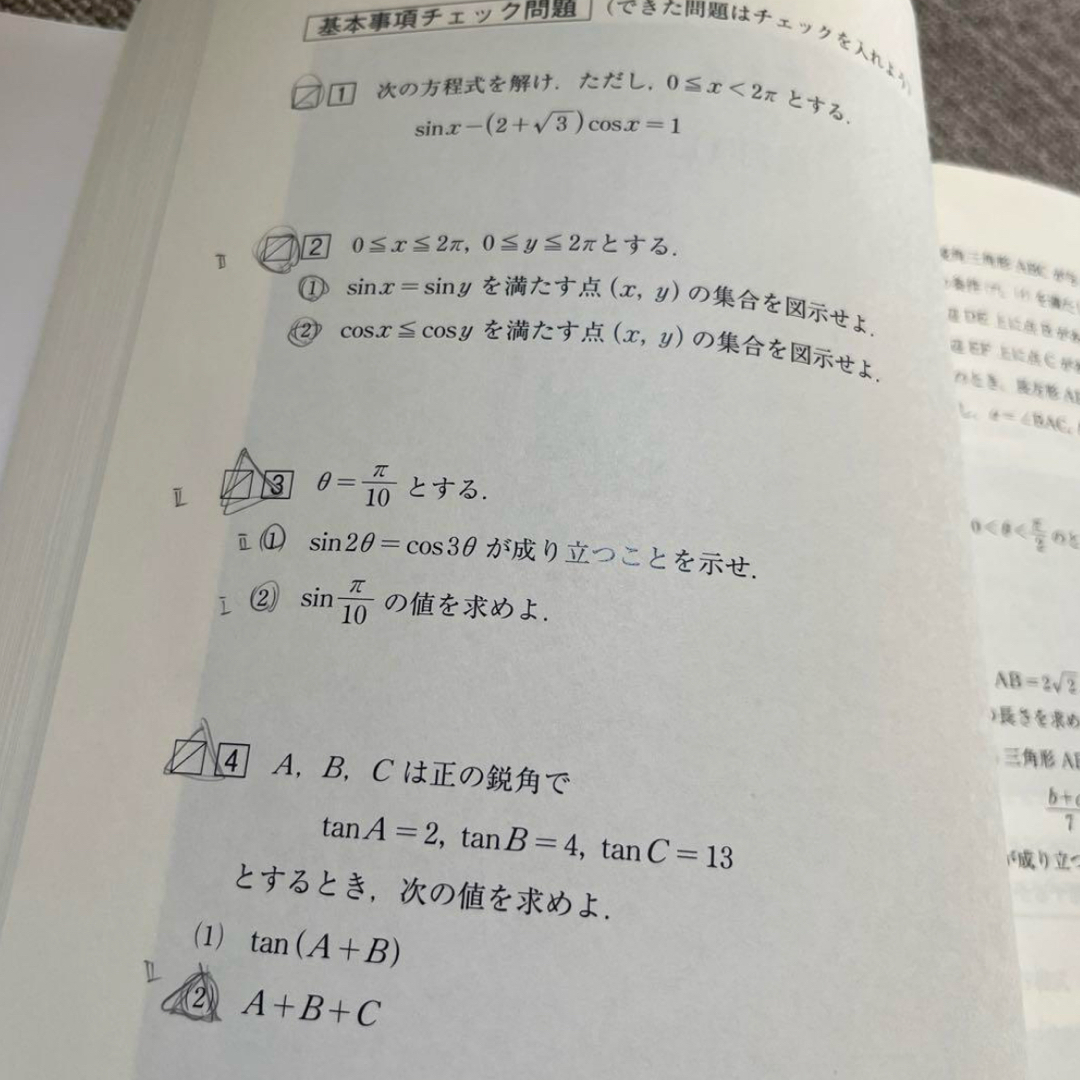 基本事項チェック問題 (できた問題はチェックを入れよう)
1 次の方程式を解け. ただし, 0≦x<2π とする.
sinx−(2+√3)cosx=1
II 2 0≦x≦2π, 0≦y≦2πとする.
(1) sinx=siny を満たす点(x, y)の集合を図示せよ.
(2) cosx≦cosy を満たす点(x, y)の集合を図示せよ.
II 3 θ=π/10 とする.
II (1) sin2θ=cos3θ が成り立つことを示せ.
I (2) sin π/10 の値を求めよ.
4 A, B, C は正の鋭角で
tanA=2, tanB=4, tanC=13
とするとき, 次の値を求めよ.
(1) tan(A+B)
II (2) A+B+C
三角形 ABC が
辺 DE 上に点 B が
辺 EF 上に点 C が
のとき,
∠BAC,
0<θ<π/2 のと
AB=2√2
の長さを求め
三角形 AB
b+c
7
が成り立つ